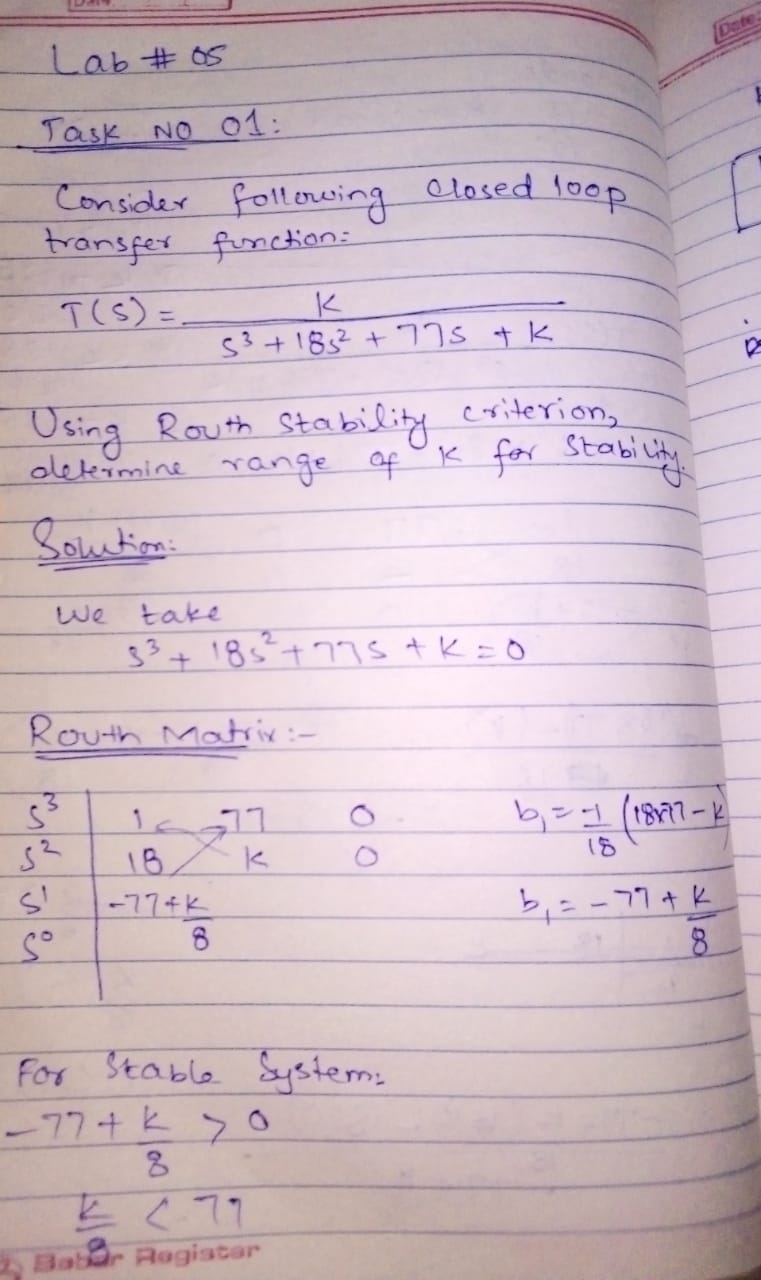 Lab # 05
Task NO 01:
Consider following closed loop
transfer function:
T(S) = K / s³ + 18s² + 77s + K
Using Routh Stability criterion,
determine range of K for Stability.
Solution:
We take
s³ + 18s² + 77s + K = 0
Routh Matrix :-
s³ | 1 77 0 b₁ = -1/18 (18x77 - K
s² | 18 K 0
s¹ | -77+K/8 b₁ = -77 + K/8
s⁰
For Stable System:
-77 + K/8 > 0
K/8 < 77
Babar Register
Date